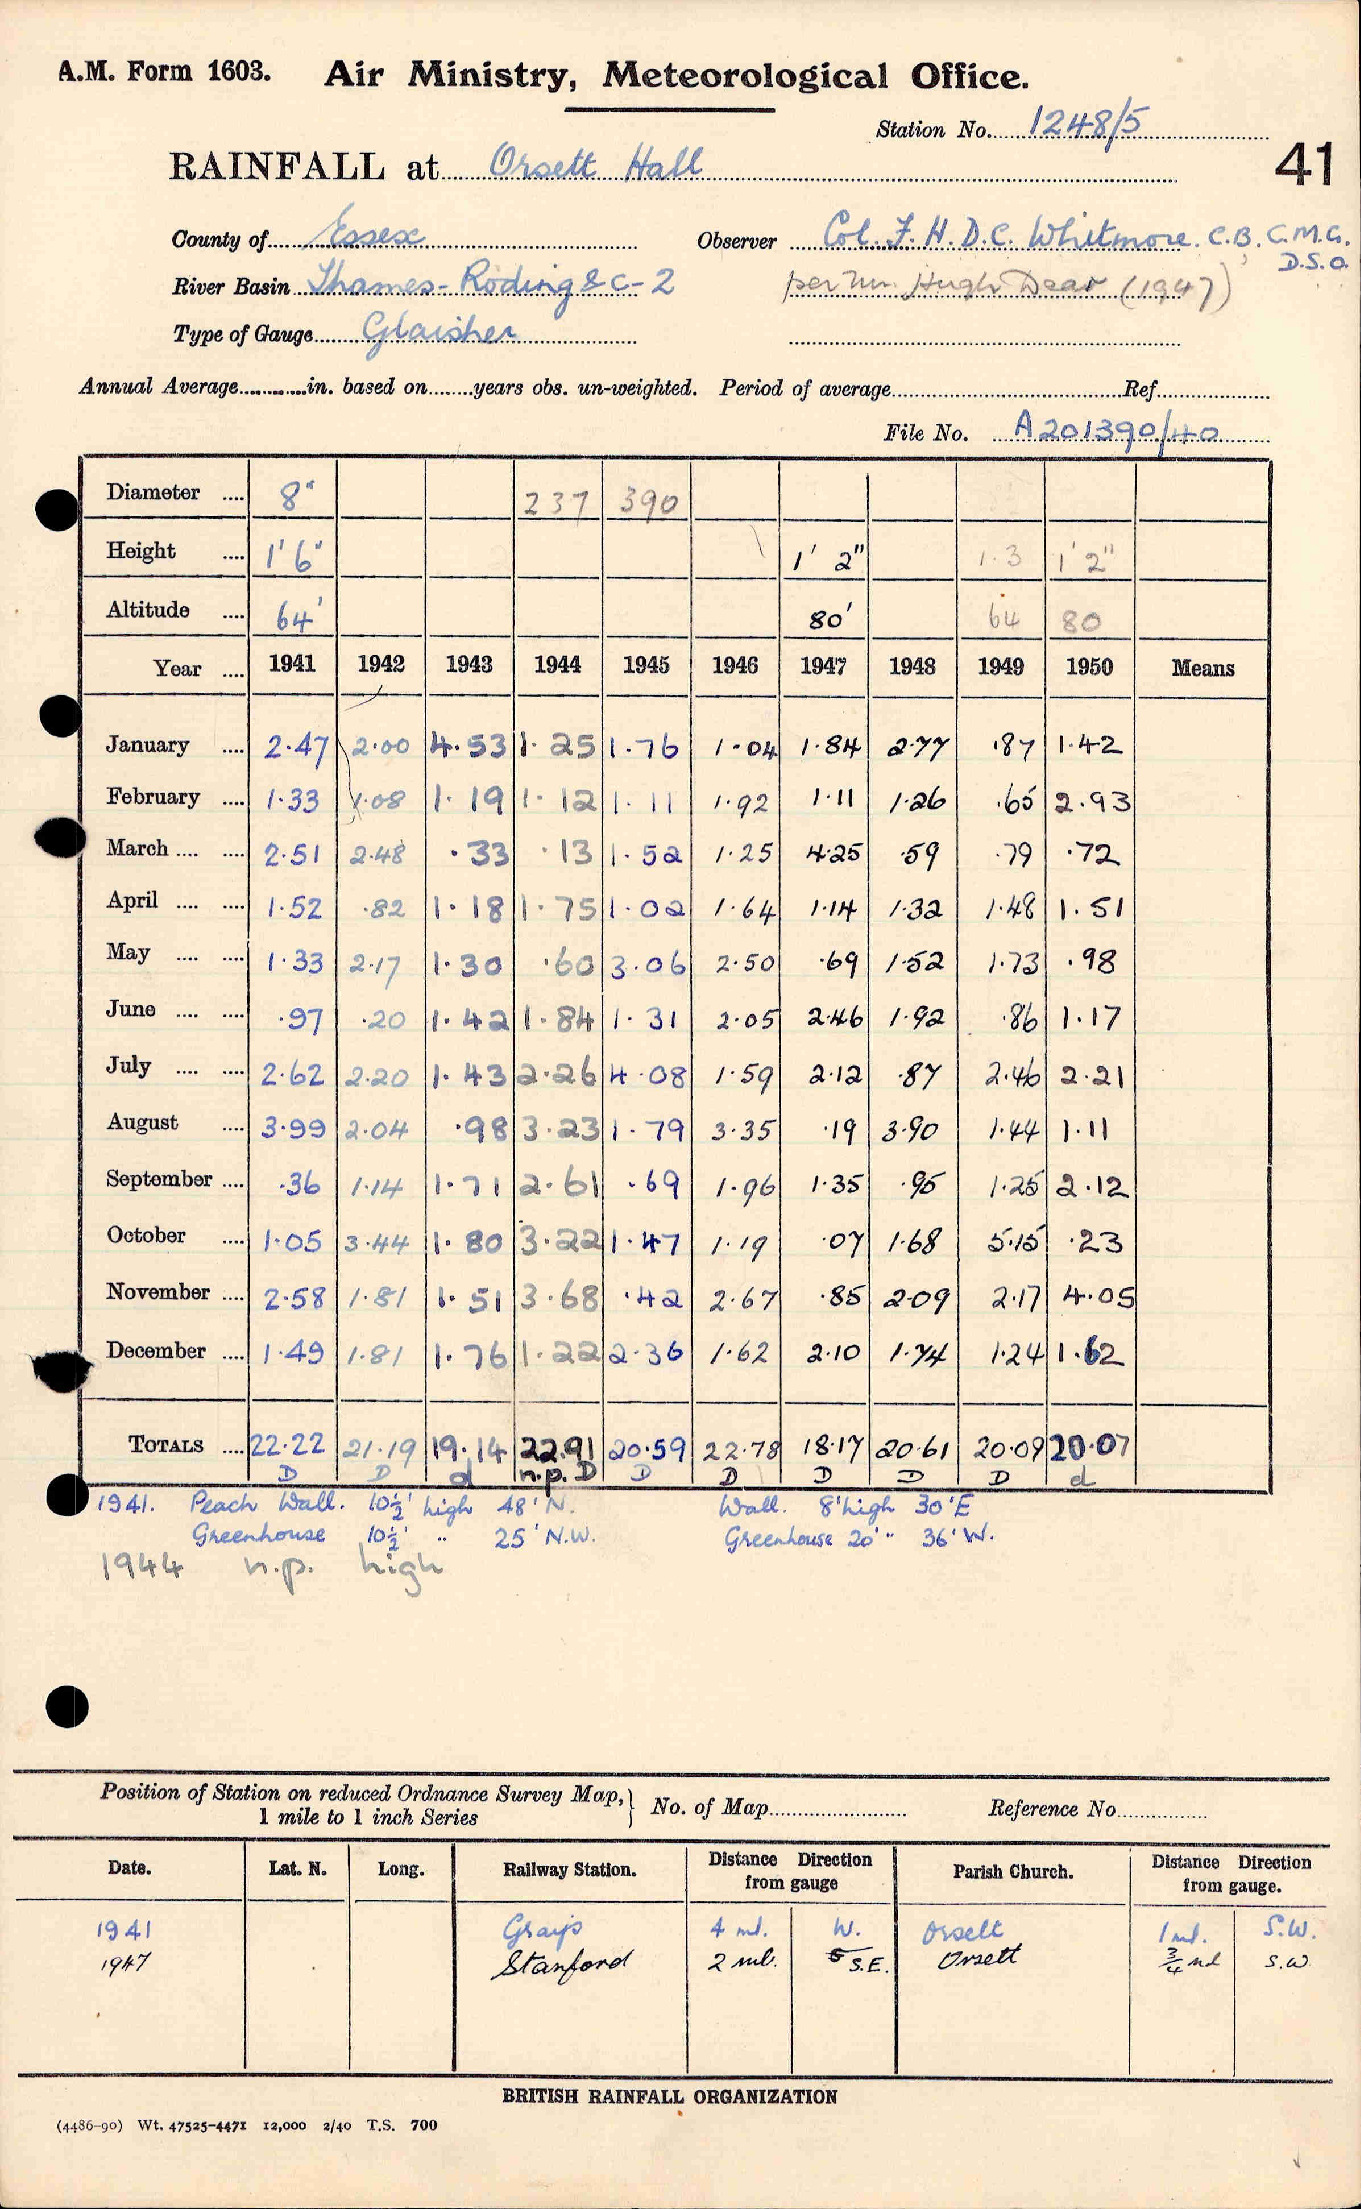 A.M. Form 1603. Air Ministry, Meteorological Office.
Station No. 1248/5
RAINFALL at Orsett Hall
41
County of Essex Observer Col. F. H. D. C. Whitmore. C.B. C.M.G. D.S.O.
River Basin Thames - Roding &c - 2 per Mr. Hugh Dear (1947)
Type of Gauge Glaisher
Annual Average in. based on years obs. un-weighted. Period of average Ref
File No. A201390/40
Diameter .... 8" 237 390
Height .... 1' 6" 1' 2" 1.3 1' 2"
Altitude .... 64' 80' 64 80
Year .... 1941 1942 1943 1944 1945 1946 1947 1948 1949 1950 Means
January .... 2.47 2.00 4.53 1.25 1.76 1.04 1.84 2.77 .87 1.42
February .... 1.33 1.08 1.19 1.12 1.11 1.92 1.11 1.26 .65 2.93
March .... .... 2.51 2.48 .33 .13 1.52 1.25 4.25 .59 .79 .72
April .... .... 1.52 .82 1.18 1.75 1.02 1.64 1.14 1.32 1.48 1.51
May .... .... 1.33 2.17 1.30 .60 3.06 2.50 .69 1.52 1.73 .98
June .... .... .97 .20 1.42 1.84 1.31 2.05 2.46 1.92 .86 1.17
July .... .... 2.62 2.20 1.43 2.26 4.08 1.59 2.12 .87 2.46 2.21
August .... 3.99 2.04 .98 3.23 1.79 3.35 .19 3.90 1.44 1.11
September .... .36 1.14 1.71 2.61 .69 1.96 1.35 .95 1.25 2.12
October .... 1.05 3.44 1.80 3.22 1.47 1.19 .07 1.68 5.15 .23
November .... 2.58 1.81 1.51 3.68 .42 2.67 .85 2.09 2.17 4.05
December .... 1.49 1.81 1.76 1.22 2.36 1.62 2.10 1.74 1.24 1.62
TOTALS .... 22.22 21.19 19.14 22.91 20.59 22.78 18.17 20.61 20.09 20.07
D D d n.p. D D D D D D d
1941. Peach Wall. 10½' high 48' N. Wall. 8' high 30' E
Greenhouse 10½' " 25' N.W. Greenhouse 20' " 36' W.
1944 n.p. high
Position of Station on reduced Ordnance Survey Map, 1 mile to 1 inch Series } No. of Map Reference No
Date. Lat. N. Long. Railway Station. Distance Direction from gauge Parish Church. Distance Direction from gauge.
1941 Grays 4 ml. W. Orsett 1 ml. S.W.
1947 Stanford 2 ml. S.E. Orsett ¾ ml S.W
BRITISH RAINFALL ORGANIZATION
(4486-90) Wt. 47525-4471 12,000 2/40 T.S. 700